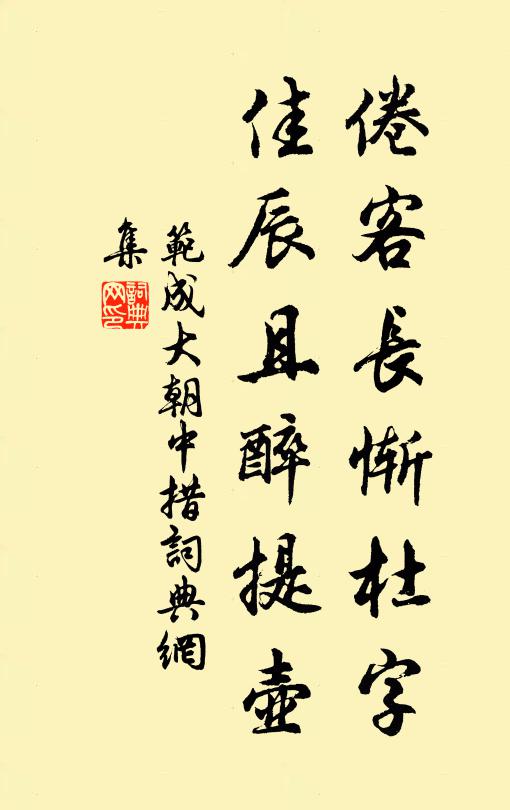 倦客長慚杜字
佳辰且醉提壺
範成大朝中措詞典網
集
詞典
网印